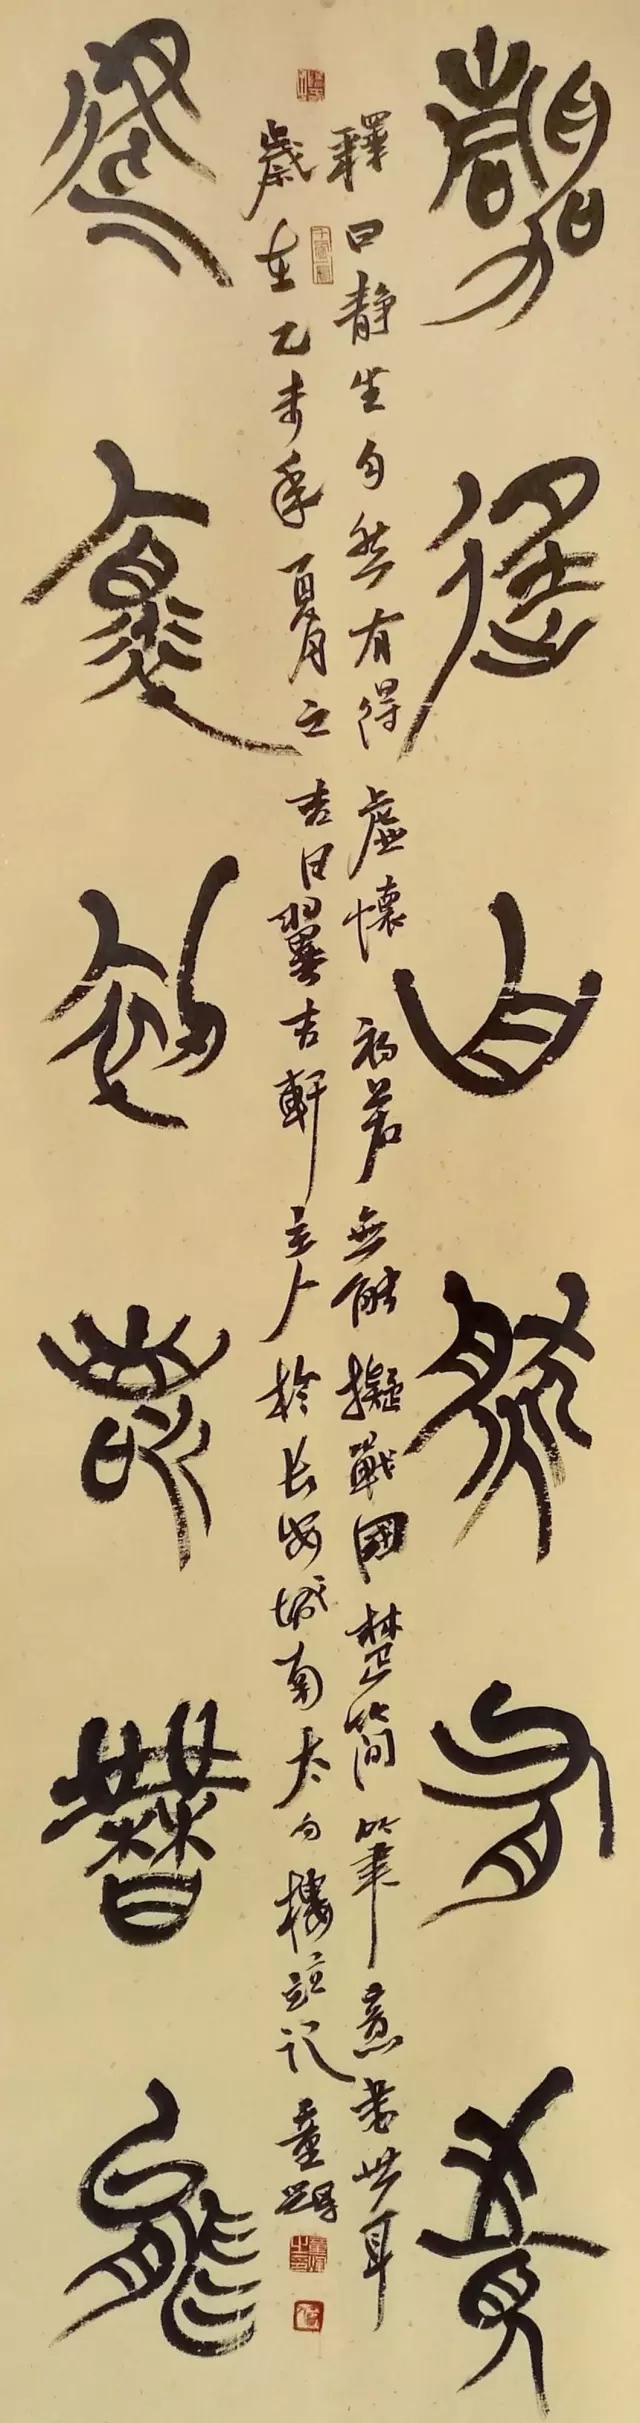 靜坐自然有得
釋曰静坐自然有得虛懷初若無能擬戰國楚簡筆意書此耳
歲在乙未年夏月之吉日翼古軒主人於長安城南太白樓並記童
虛懷初若無能